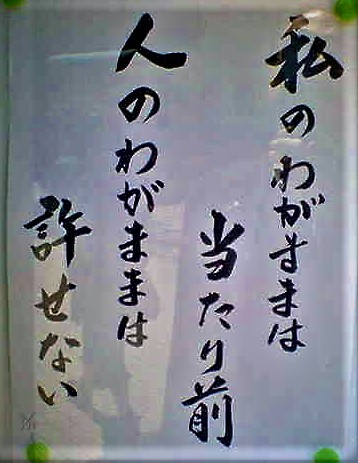 私のわがままは
当たり前
人のわがままは
許せない